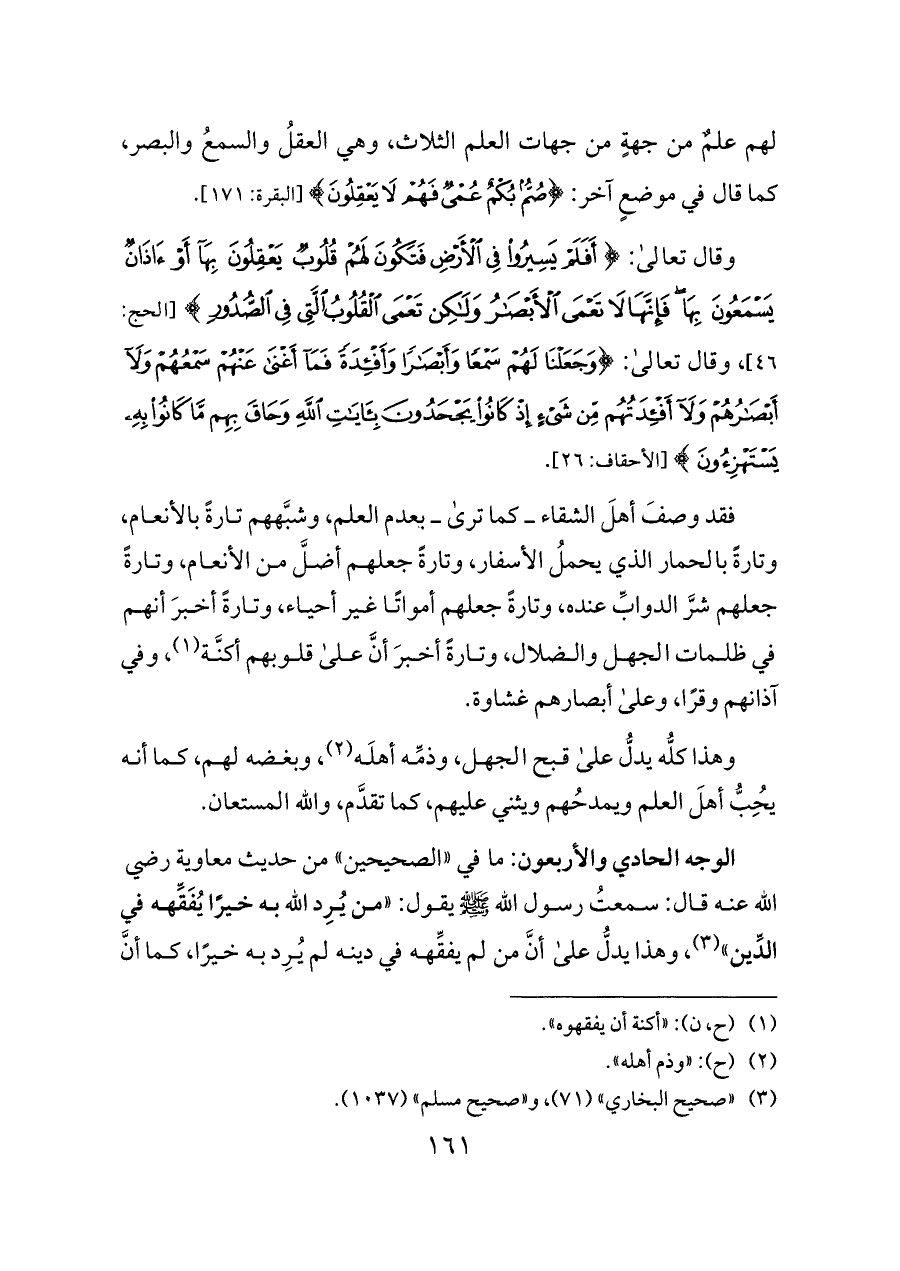 لهم علمٌ من جهةٍ من جهات العلم الثلاث، وهي العقلُ والسمعُ والبصر،
كما قال في موضعٍ آخر: ﴿صُمُّۢ بُكۡمٌ عُمۡيٞ فَهُمۡ لَا يَعۡقِلُونَ﴾ [البقرة: ١٧١].
وقال تعالىٰ: ﴿أَفَلَمۡ يَسِيرُواْ فِي ٱلۡأَرۡضِ فَتَكُونَ لَهُمۡ قُلُوبٞ يَعۡقِلُونَ بِهَآ أَوۡ ءَاذَانٞ
يَسۡمَعُونَ بِهَاۖ فَإِنَّهَا لَا تَعۡمَى ٱلۡأَبۡصَٰرُ وَلَٰكِن تَعۡمَى ٱلۡقُلُوبُ ٱلَّتِي فِي ٱلصُّدُورِ﴾ [الحج:
٤٦]، وقال تعالىٰ: ﴿وَجَعَلۡنَا لَهُمۡ سَمۡعٗا وَأَبۡصَٰرٗا وَأَفۡـِٔدَةٗ فَمَآ أَغۡنَىٰ عَنۡهُمۡ سَمۡعُهُمۡ وَلَآ
أَبۡصَٰرُهُمۡ وَلَآ أَفۡـِٔدَتُهُم مِّن شَيۡءٍ إِذۡ كَانُواْ يَجۡحَدُونَ بِـَٔايَٰتِ ٱللَّهِ وَحَاقَ بِهِم مَّا كَانُواْ بِهِۦ
يَسۡتَهۡزِءُونَ﴾ [الأحقاف: ٢٦].
فقد وصفَ أهلَ الشقاء ـ كما ترىٰ ـ بعدم العلم، وشبَّههم تارةً بالأنعام،
وتارةً بالحمار الذي يحملُ الأسفار، وتارةً جعلهم أضلَّ من الأنعام، وتارةً
جعلهم شرَّ الدوابِّ عنده، وتارةً جعلهم أمواتًا غير أحياء، وتارةً أخبرَ أنهم
في ظلمات الجهل والضلال، وتارةً أخبرَ أنَّ علىٰ قلوبهم أكنَّة(١)، وفي
آذانهم وقرًا، وعلىٰ أبصارهم غشاوة.
وهذا كلُّه يدلُّ علىٰ قبح الجهل، وذمِّه أهلَه(٢)، وبغضه لهم، كما أنه
يحُِبُّ أهلَ العلم ويمدحُهم ويثني عليهم، كما تقدَّم، والله المستعان.
الوجه الحادي والأربعون: ما في «الصحيحين» من حديث معاوية رضي
الله عنه قال: سمعتُ رسول الله ﷺ يقول: «من يُرِد الله به خيرًا يُفَقِّهه في
الدِّين»(٣)، وهذا يدلُّ علىٰ أنَّ من لم يفقِّهه في دينه لم يُرِد به خيرًا، كما أنَّ
(١) (ح، ن): «أكنة أن يفقهوه».
(٢) (ح): «وذم أهله».
(٣) «صحيح البخاري» (٧١)، و«صحيح مسلم» (١٠٣٧).
١٦١